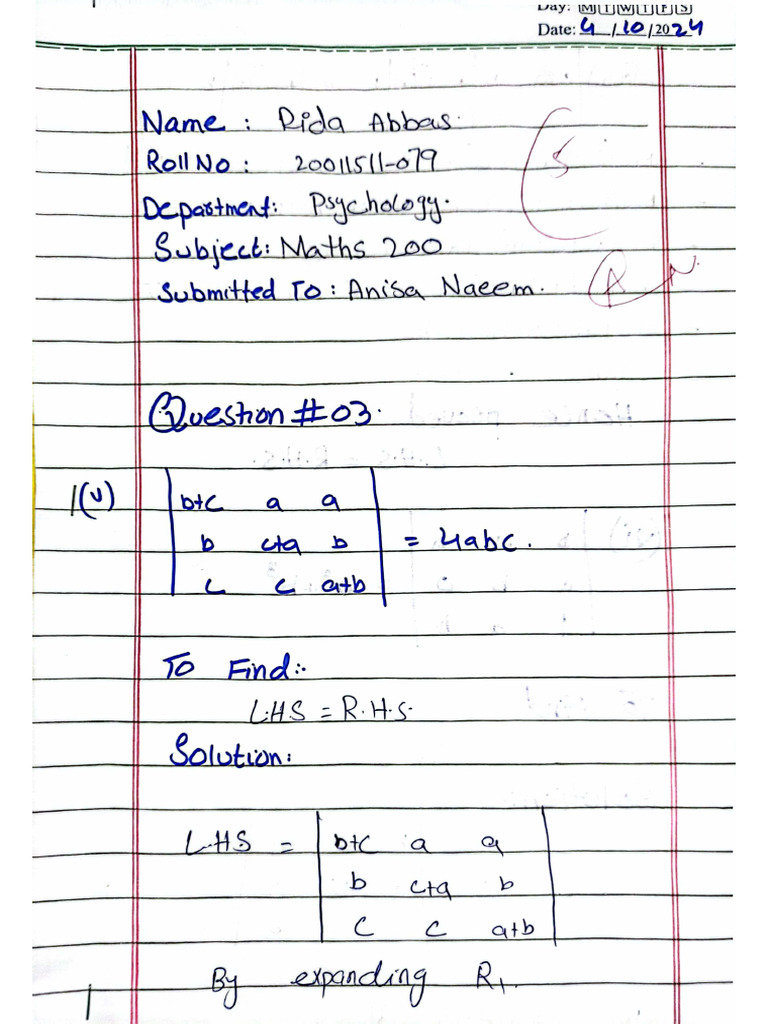 Day: M T W T F S
Date: 4/10/2024
Name : Rida Abbas.
Roll No : 20011511-079
5
Department: Psychology.
Subject: Maths 200
Submitted To : Anisa Naeem.
A N.
Question #03.
1(v)
b+c a a
b c+a b = 4abc.
c c a+b
To Find:-
L.H.S = R.H.S.
Solution:
L.H.S = b+c a a
b c+a b
c c a+b
By expanding R1.
1